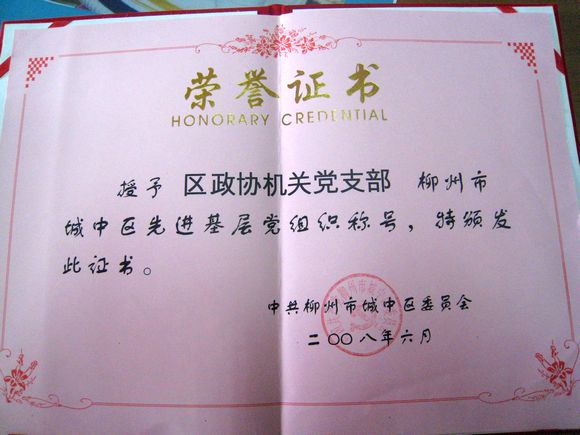 荣誉证书
HONORARY CREDENTIAL
授予 区政协机关党支部 柳州市
城中区先进基层党组织称号，特颁发
此证书。
中共柳州市城中区委员会
二〇〇八年六月